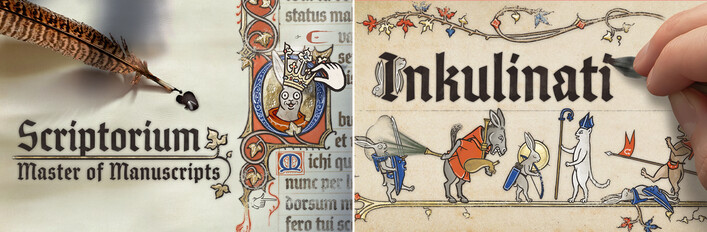 Scriptorium
Master of Manuscripts
status ma
Michi qu
nunc per
dorsum m
fero tui sc
Inkulinati